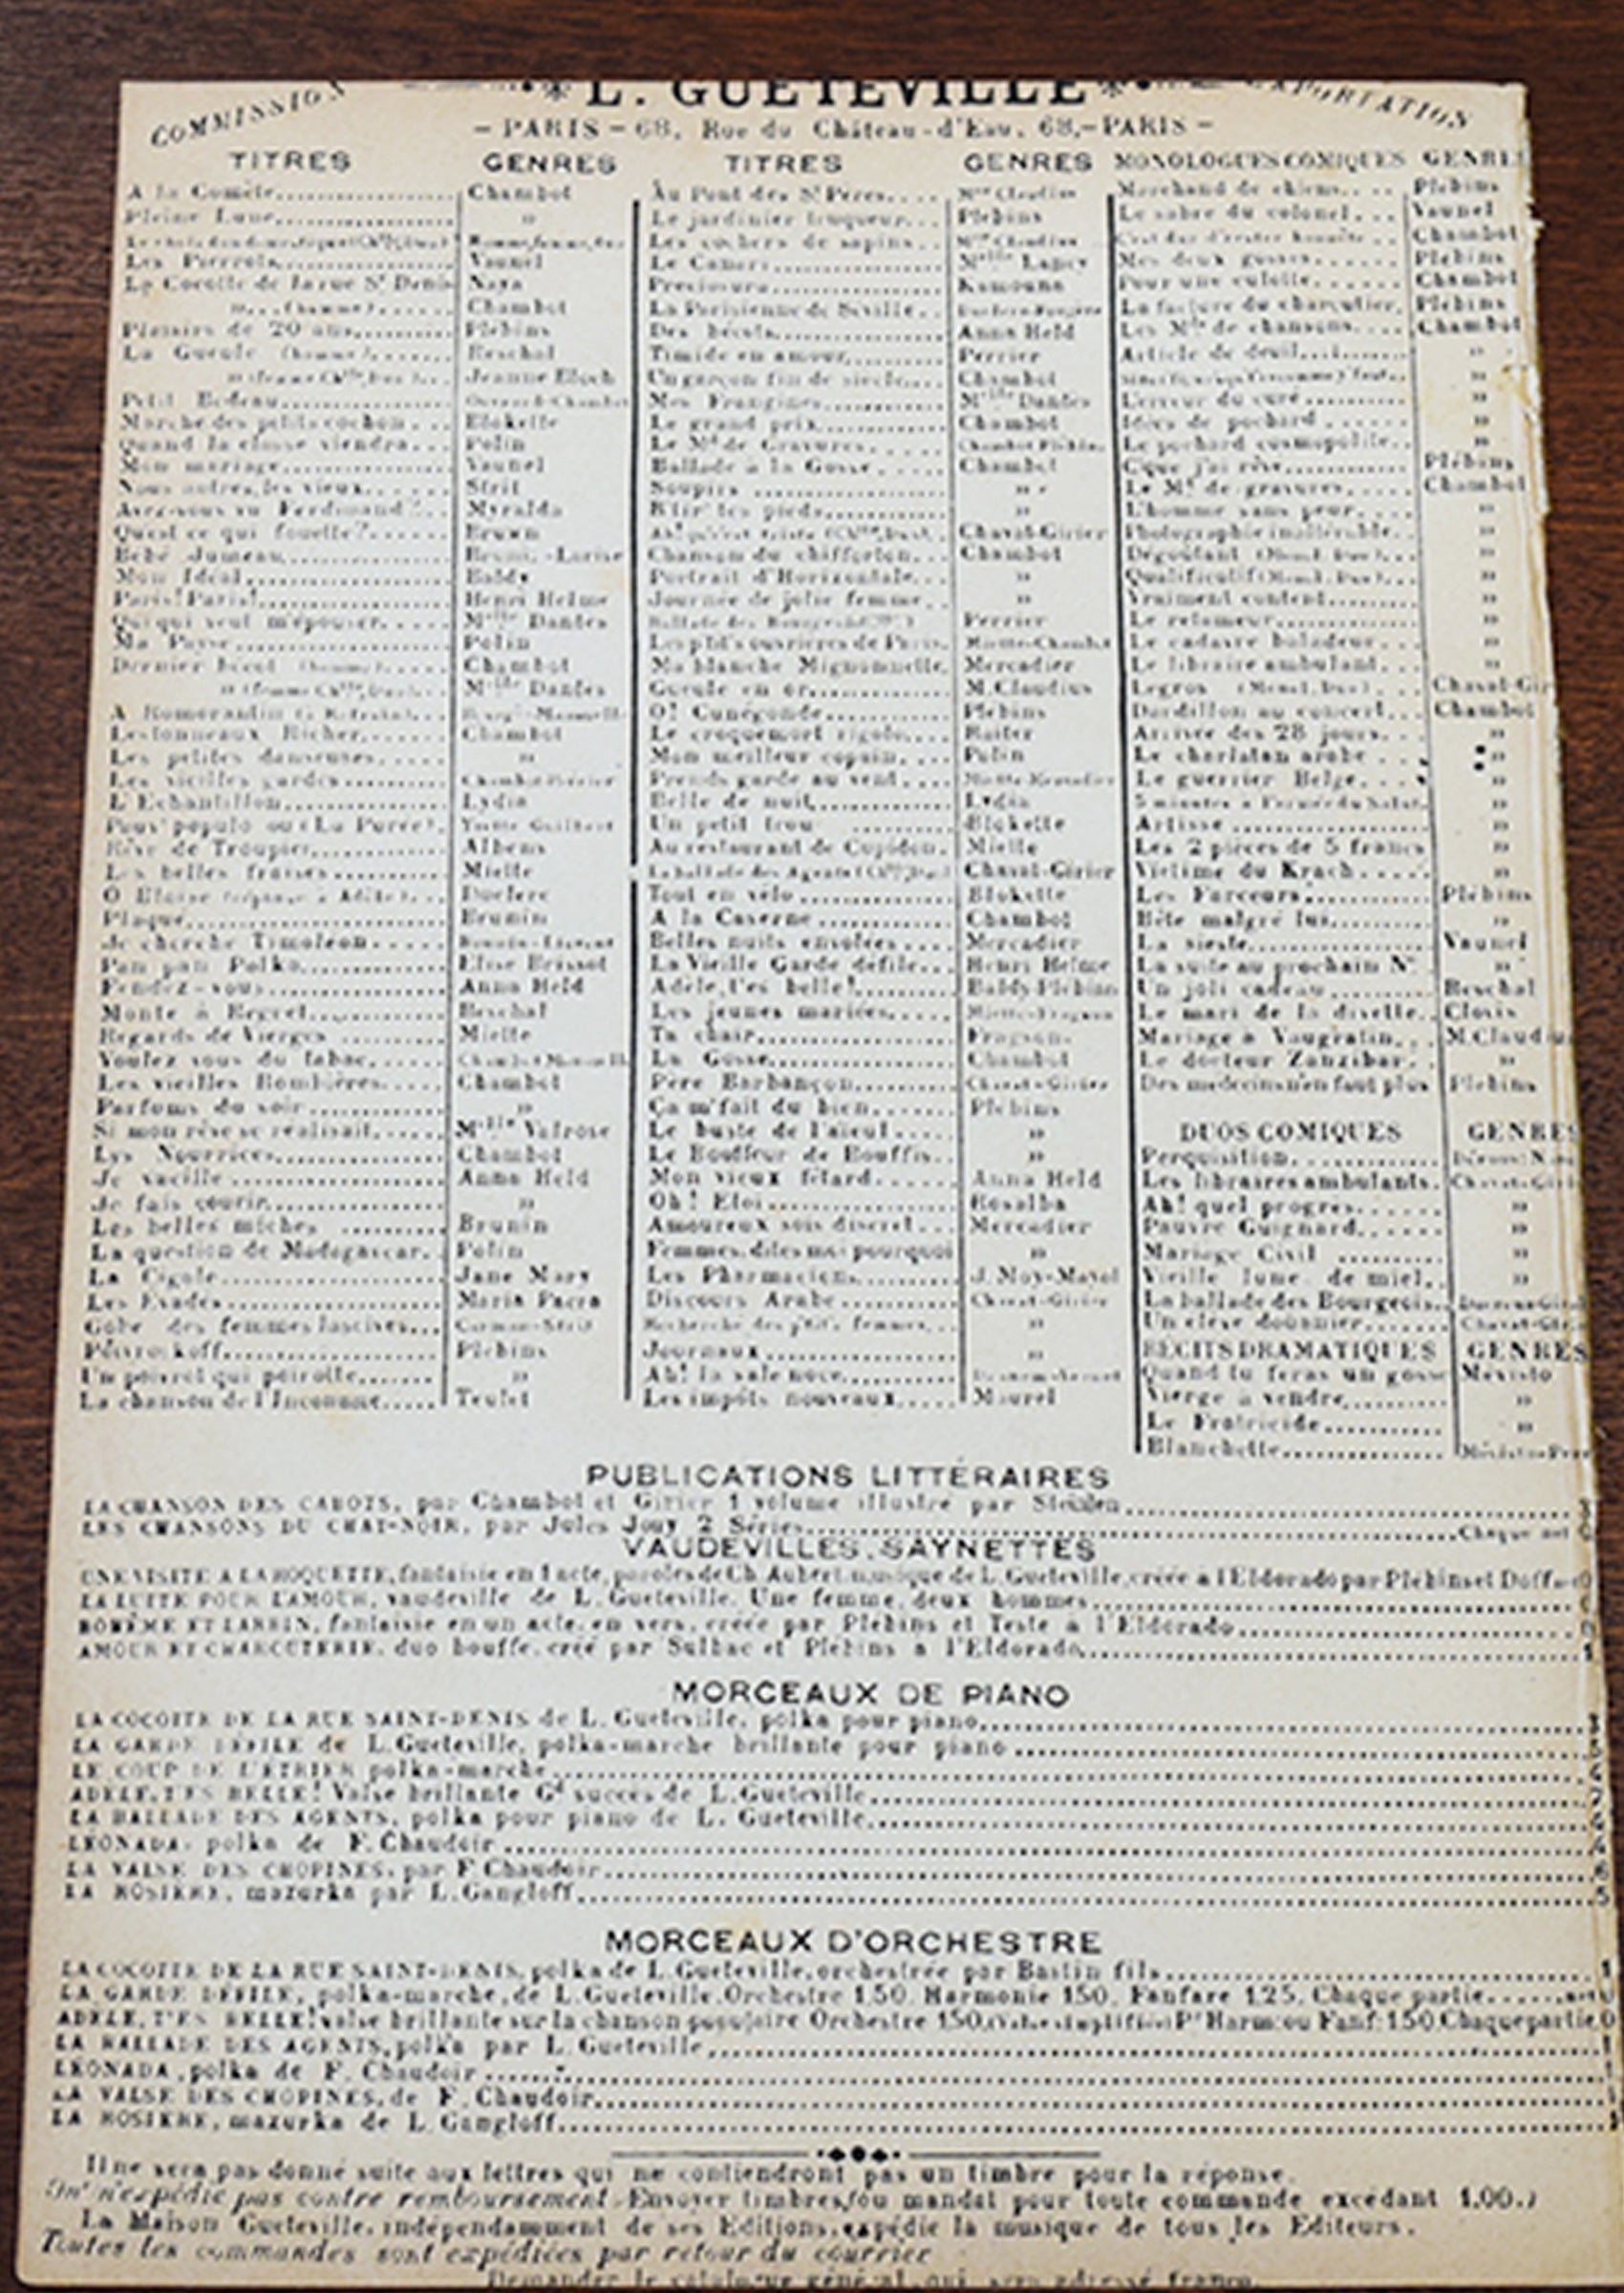 COMMISSION
L. GUETEVILLE
EXPORTATION
- PARIS - 68, Rue du Château-d'Eau, 68,- PARIS -
TITRES GENRES
A la Comète Chambot
Pleine Lune »
Les Pierrots Vaunel
La Cocotte de la rue St Denis Naya
» (homme) Chambot
Plaisirs de 20 ans Plébins
La Gueule (homme) Reschal
Jeanne Bloch
Petit Bedeau
Marche des petits cochon Blokette
Quand la classe viendra Polin
Mon mariage Vaunel
Nous autres, les vieux Strit
Avez-vous vu Ferdinand ? Myralda
Qu'est ce qui fouette ? Bruant
Bébé Jumeau
Mon Idéal Baldy
Paris! Paris! Henri Helme
Qui qui veut m'épouser Melle Dantes
Ma Payse Polin
Dernier bécot (homme) Chambot
Melle Dantes
A Romorantin
Les tonneaux Richer Chambot
Les petites danseuses »
Les vieilles gardes
L'Echantillon Lydia
Pauv' populo ou (La Purée) Yvette Guilbert
Rêve de Troupier Albens
Les belles fraises Miette
O Eloïse (réponse à Adèle) Duclerc
Plaqué Brunin
Je cherche Timoléon
Pan pan Polka Elise Brissot
Rendez-vous Anna Held
Monte à Regret Reschal
Regards de Vierges Miette
Voulez vous du tabac
Les vieilles Rombières Chambot
Parfums du soir »
Si mon rêve se réalisait Melle Valrose
Lys Nourrices Chambot
Je vacille Anna Held
Je fais courir »
Les belles miches Brunin
La question de Madagascar Polin
La Cigale Jane Mary
Les Evadés Maria Pacra
Gobe des femmes lascives
Plébins
Un poivrot qui poirotte »
La chanson de l'Inconnue Teulet
TITRES GENRES
Au Pont des Sts Pères
Le jardinier truqueur Plébins
Les cochers de sapins
Le Canari Melle Lancy
Kamouna
La Parisienne de Séville
Des bécots Anna Held
Timide en amour Perrier
Un garçon fin de siècle Chambot
Mes Frangines Melle Dantes
Le grand prix Chambot
Le Md de Gravures Chambot Plébins
Ballade à la Gosse Chambot
Soupirs »
R'tir' tes pieds »
Chavat-Girier
Chanson du chifforton Chambot
Portrait d'Horizontale »
Journée de jolie femme »
Perrier
Les p'tits ouvrières de Paris
Ma blanche Mignonnette Mercadier
Gueule en or M. Claudius
O! Cunégonde Plébins
Le croquemort rigolo Raiter
Mon meilleur copain Polin
Prends garde au vent
Belle de nuit Lydia
Un petit trou Blokette
Au restaurant de Cupidon Miette
La ballade des Agents Chavat-Girier
Tout en vélo Blokette
A la Caserne Chambot
Belles nuits envolées Mercadier
La Vieille Garde défile Henri Helme
Adèle, t'es belle! Baldy-Plébins
Les jeunes mariées
Ta chair Fragson
La Gosse Chambot
Père Barbançon Chavat-Girier
Ça m'fait du bien Plébins
Le buste de l'aïeul »
Le Bouffeur de Bouffis »
Mon vieux fêtard Anna Held
Oh! Eloi Rosalba
Amoureux sois discret Mercadier
Femmes, dites moi pourquoi »
Les Pharmaciens J. Moy-Mayol
Discours Arabe Chavat-Girier
Recherche des p'tit's femmes »
Journaux »
Ah! la sale noce
Les impôts nouveaux Maurel
MONOLOGUES COMIQUES GENRE
Marchand de chiens Plébins
Le sabre du colonel Vaunel
C'est dur d'rester honnête Chambot
Mes deux gosses Plébins
Pour une culotte Chambot
La facture du charcutier Plébins
Les Mds de chansons Chambot
Article de deuil »
L'erreur du curé »
Idées de pochard »
Le pochard cosmopolite »
C'que j'ai rêvé Plébins
Le Md de gravures Chambot
L'homme sans peur »
Photographie inaltérable »
Dégoûtant »
Qualificatif »
Vraiment content »
Le retameur »
Le cadavre baladeur »
Le libraire ambulant »
Legros Chavat-Gir
Dardillon au concert Chambot
Arrivée des 28 jours »
Le charlatan arabe »
Le guerrier Belge »
Artisse »
Les 2 pièces de 5 francs »
Victime du Krach »
Les Farceurs Plébins
Bête malgré lui »
La sieste Vaunel
La suite au prochain No »
Un joli cadeau Reschal
Le mari de la divette Clovis
Mariage à Vaugralin M. Claudiu
Le docteur Zanzibar »
Des médecins n'en faut plus Plébins
DUOS COMIQUES GENRES
Perquisition
Les libraires ambulants Chavat-Giri
Ah! quel progrès »
Pauvre Guignard »
Mariage Civil »
Vieille lune de miel »
La ballade des Bourgeois
Un élève douanier Chavat-Gir
RÉCITS DRAMATIQUES GENRES
Quand tu feras un gosse Mévisto
Vierge à vendre »
Le Fratricide »
Blanchette
PUBLICATIONS LITTÉRAIRES
LA CHANSON DES CABOTS, par Chambot et Girier 1 volume illustré par Steinlen
LES CHANSONS DU CHAT-NOIR, par Jules Jouy 2 Séries Chaque net
VAUDEVILLES, SAYNETTES
UNE VISITE A LA ROQUETTE, fantaisie en 1 acte, paroles de Ch. Aubert musique de L. Gueteville, créée à l'Eldorado par Plébins et
LA LUTTE POUR L'AMOUR, vaudeville de L. Gueteville. Une femme, deux hommes
BOHÈME ET LARBIN, fantaisie en un acte, en vers, créée par Plébins et Teste à l'Eldorado
AMOUR ET CHARCUTERIE, duo bouffe, créé par Sulbac et Plébins à l'Eldorado 1
MORCEAUX DE PIANO
LA COCOTTE DE LA RUE SAINT-DENIS de L. Gueteville, polka pour piano
LA GARDE DÉFILE de L. Gueteville, polka-marche brillante pour piano
LE COUP DE L'ÉTRIER polka-marche
ADÈLE, T'ES BELLE! Valse brillante Gd succès de L. Gueteville
LA BALLADE DES AGENTS, polka pour piano de L. Gueteville
LÉONADA polka de F. Chaudoir
LA VALSE DES CHOPINES, par F. Chaudoir 6
LA ROSIÈRE, mazurka par L. Gangloff 5
MORCEAUX D'ORCHESTRE
LA COCOTTE DE LA RUE SAINT-DENIS, polka de L. Gueteville, orchestrée par Bastin fils 1
LA GARDE DÉFILE, polka-marche, de L. Gueteville. Orchestre 1.50. Harmonie 150. Fanfare 1.25. Chaque partie
ADÈLE, T'ES BELLE! valse brillante sur la chanson populaire Orchestre 150 Pr Harm. ou Fanf: 150 Chaque partie 0
LA BALLADE DES AGENTS, polka par L. Gueteville 1
LÉONADA, polka de F. Chaudoir 1
LA VALSE DES CHOPINES, de F. Chaudoir 1
LA ROSIÈRE, mazurka de L. Gangloff 1
Il ne sera pas donné suite aux lettres qui ne contiendront pas un timbre pour la réponse.
On n'expédie pas contre remboursement. Envoyer timbres, (ou mandat pour toute commande excédant 1.00.)
La Maison Gueteville, indépendamment de ses Editions, expédie la musique de tous les Editeurs.
Toutes les commandes sont expédiées par retour du courrier
Demander le catalogue général, qui sera adressé franco.